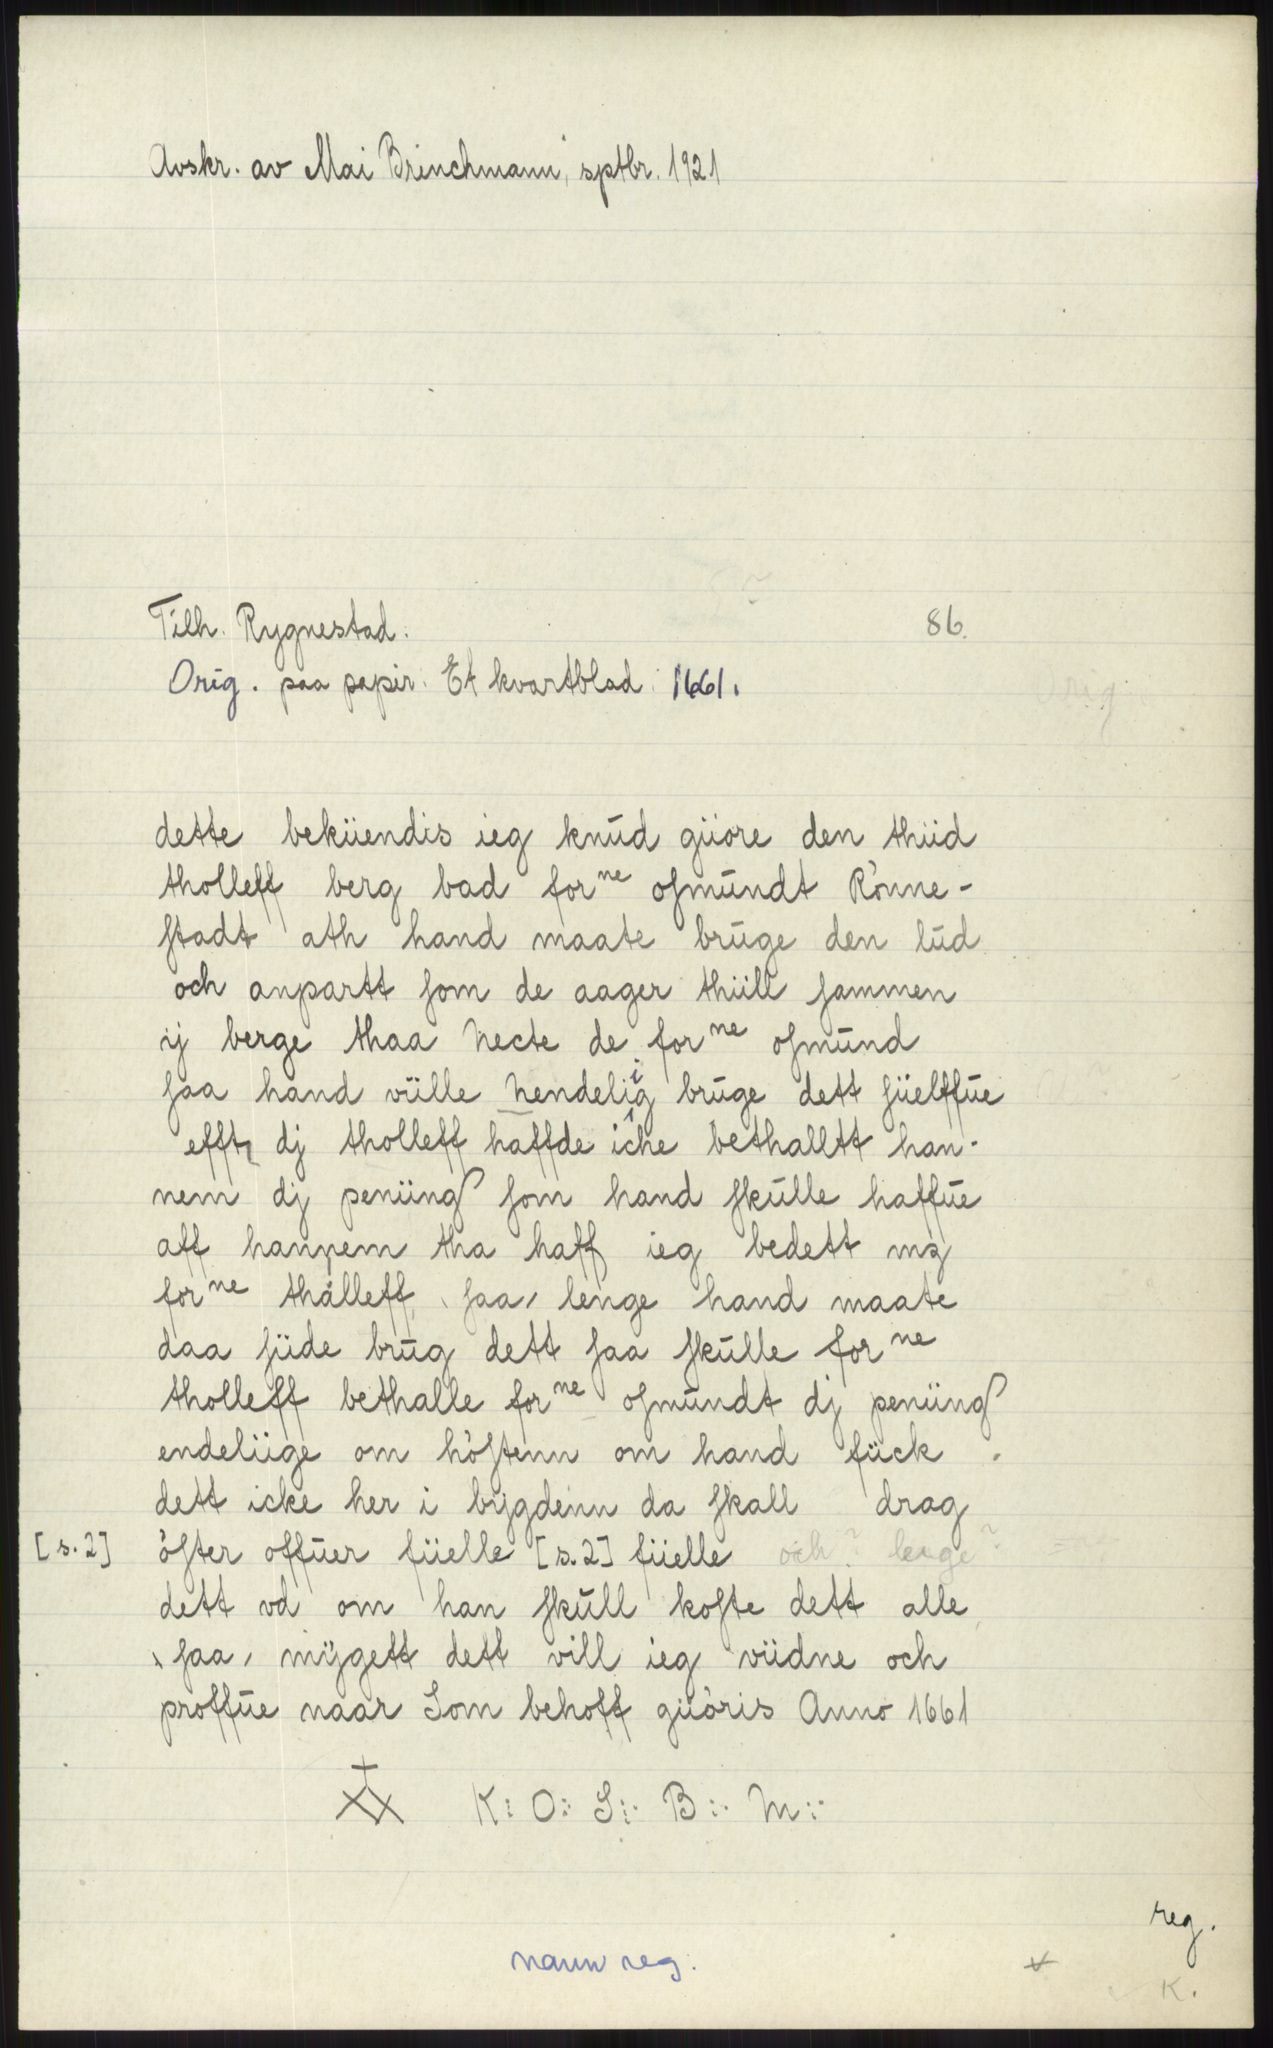 Avskr. av Mai Brinchmann, sptbr. 1921
Tilh. Rygnestad. 86.
Orig. paa papir. Et kvartblad. 1661.
dette beküendis ieg knŭd güore den thiid
tholleff berg bad for^ne ofmŭndt Rönne-
ſtadt ath hand maate brŭge den lŭd
och anpartt ſom de aager thiill ſammen
ij berge thaa necte de for^ne oſmŭnd
ſaa hand vülle nendeliig brŭge dett ſüelffŭe
efft dj tholleff haffde iche bethalltt han-
nem dj penüng ſom hand ſkŭlle haffŭe
aff hannem tha haff ieg bedett mz
for^ne thålleff, ſaa, lenge hand maate
daa ſüde brŭg dett ſaa ſkŭlle for^ne
tholleff bethalle for^ne oſmŭndt dj penüng
endeliige om höſtenn om hand fück
dett icke her i bÿgdenn da ſkall drag
[s.2] öſter offŭer füelle [s.2] füelle och? lenge?
dett vd om han ſkŭll koſte dett alle
ſaa, mÿgett dett vill ieg viidne och
proffŭe naar Som behoff güöris Anno 1661
K: O: S: B: M:
reg.
navn reg.
K.